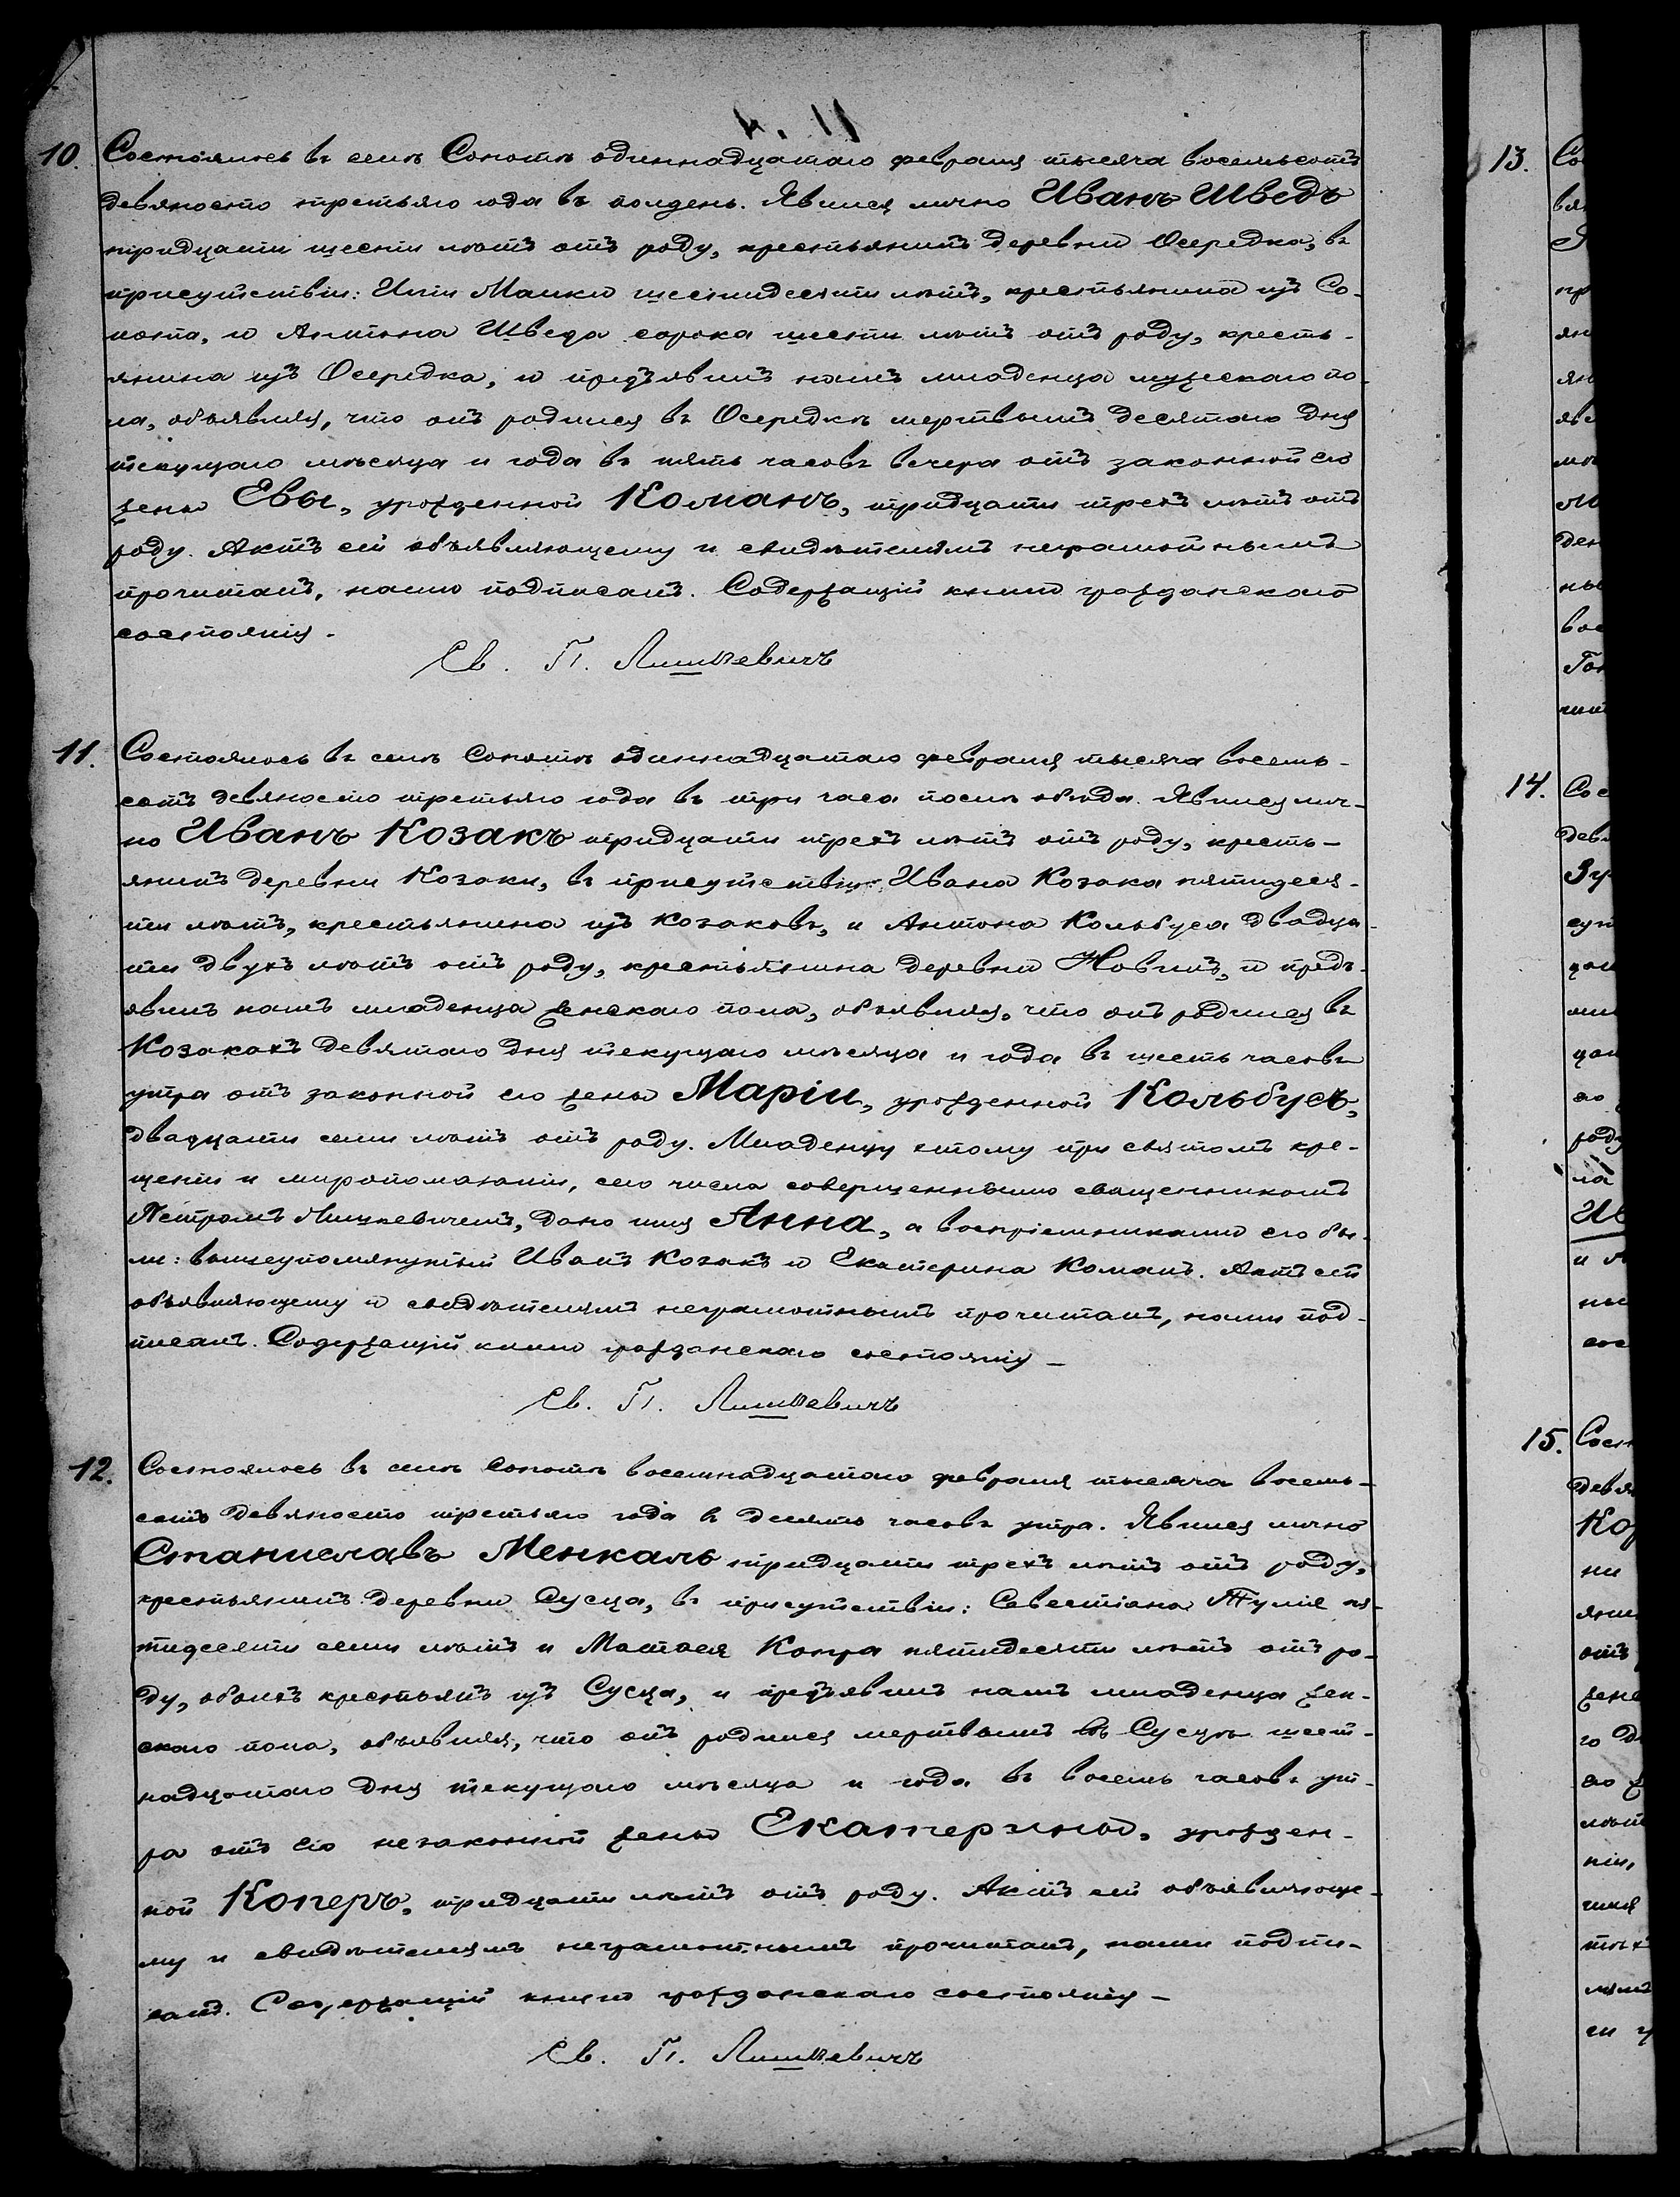 10. Состоялось въ селѣ Сопотѣ одиннадцатаго февраля тысяча восемьсотъ
девяносто третьяго года въ полдень. Явился лично Иванъ Шведъ
тридцати шести лѣтъ отъ роду, крестьянинъ деревни Осередка, въ
присутствіи: Иліи Малки шестидесяти лѣтъ, крестьянина изъ Со-
пота, и Антона Шведа сорока шести лѣтъ отъ роду, кресть-
янина изъ Осередка, и предъявилъ намъ младенца мужескаго по-
ла, объявляя, что онъ родился въ Осередкѣ мертвымъ десятаго дня
текущаго мѣсяца и года въ пять часовъ вечера отъ законной его
жены Евы, урожденной Команъ, тридцати трехъ лѣтъ отъ
роду. Актъ сей объявляющему и свидѣтелямъ неграмотнымъ
прочитанъ, нами подписанъ. Содержащій книги гражданскаго
состоянія.
Св. П. Лишкевичъ
11. Состоялось въ селѣ Сопотѣ одиннадцатаго февраля тысяча восемь-
сотъ девяносто третьяго года въ три часа послѣ обѣда. Явился лич-
но Иванъ Козакъ тридцати трехъ лѣтъ отъ роду, кресть-
янинъ деревни Козаки, въ присутствіи: Ивана Козака пятидеся-
ти лѣтъ, крестьянина изъ Козаковъ, и Антона Кольбуса двадца-
ти двухъ лѣтъ отъ роду, крестьянина деревни Новинъ, и предъ-
явилъ намъ младенца женскаго пола, объявляя, что онъ родился въ
Козакахъ девятаго дня текущаго мѣсяца и года въ шесть часовъ
утра отъ законной его жены Маріи, урожденной Кольбусъ,
двадцати семи лѣтъ отъ роду. Младенцу этому при святомъ кре-
щеніи и миропомазаніи, сего числа совершенныхъ священникомъ
Петромъ Лишкевичемъ, дано имя Анна, а воспріемниками его бы-
ли: вышеупомянутый Иванъ Козакъ и Екатерина Команъ. Актъ сей
объявляющему и свидѣтелямъ неграмотнымъ прочитанъ, нами под-
писанъ. Содержащій книги гражданскаго состоянія
Св. П. Лишкевичъ
12. Состоялось въ селѣ Сопотѣ восемнадцатаго февраля тысяча восемь-
сотъ девяносто третьяго года въ десять часовъ утра. Явился лично
Станиславъ Менкаль тридцати трехъ лѣтъ отъ роду,
крестьянинъ деревни Сусца, въ присутствіи: Севастіана пя-
тидесяти семи лѣтъ и Матвея Копра пятидесяти лѣтъ отъ ро-
ду, обоихъ крестьянъ изъ Сусца, и предъявилъ намъ младенца жен-
скаго пола, объявляя, что онъ родился мертвымъ въ Сусцѣ шест-
надцатаго дня текущаго мѣсяца и года въ восемь часовъ ут-
ра отъ его незаконной жены Екатерины, урожден-
ной Коперъ, тридцати лѣтъ отъ роду. Актъ сей объявляюще-
му и свидѣтелямъ неграмотнымъ прочитанъ, нами подпи-
санъ. Содержащій книги гражданскаго состоянія
Св. П. Лишкевичъ
13.
14.
15.